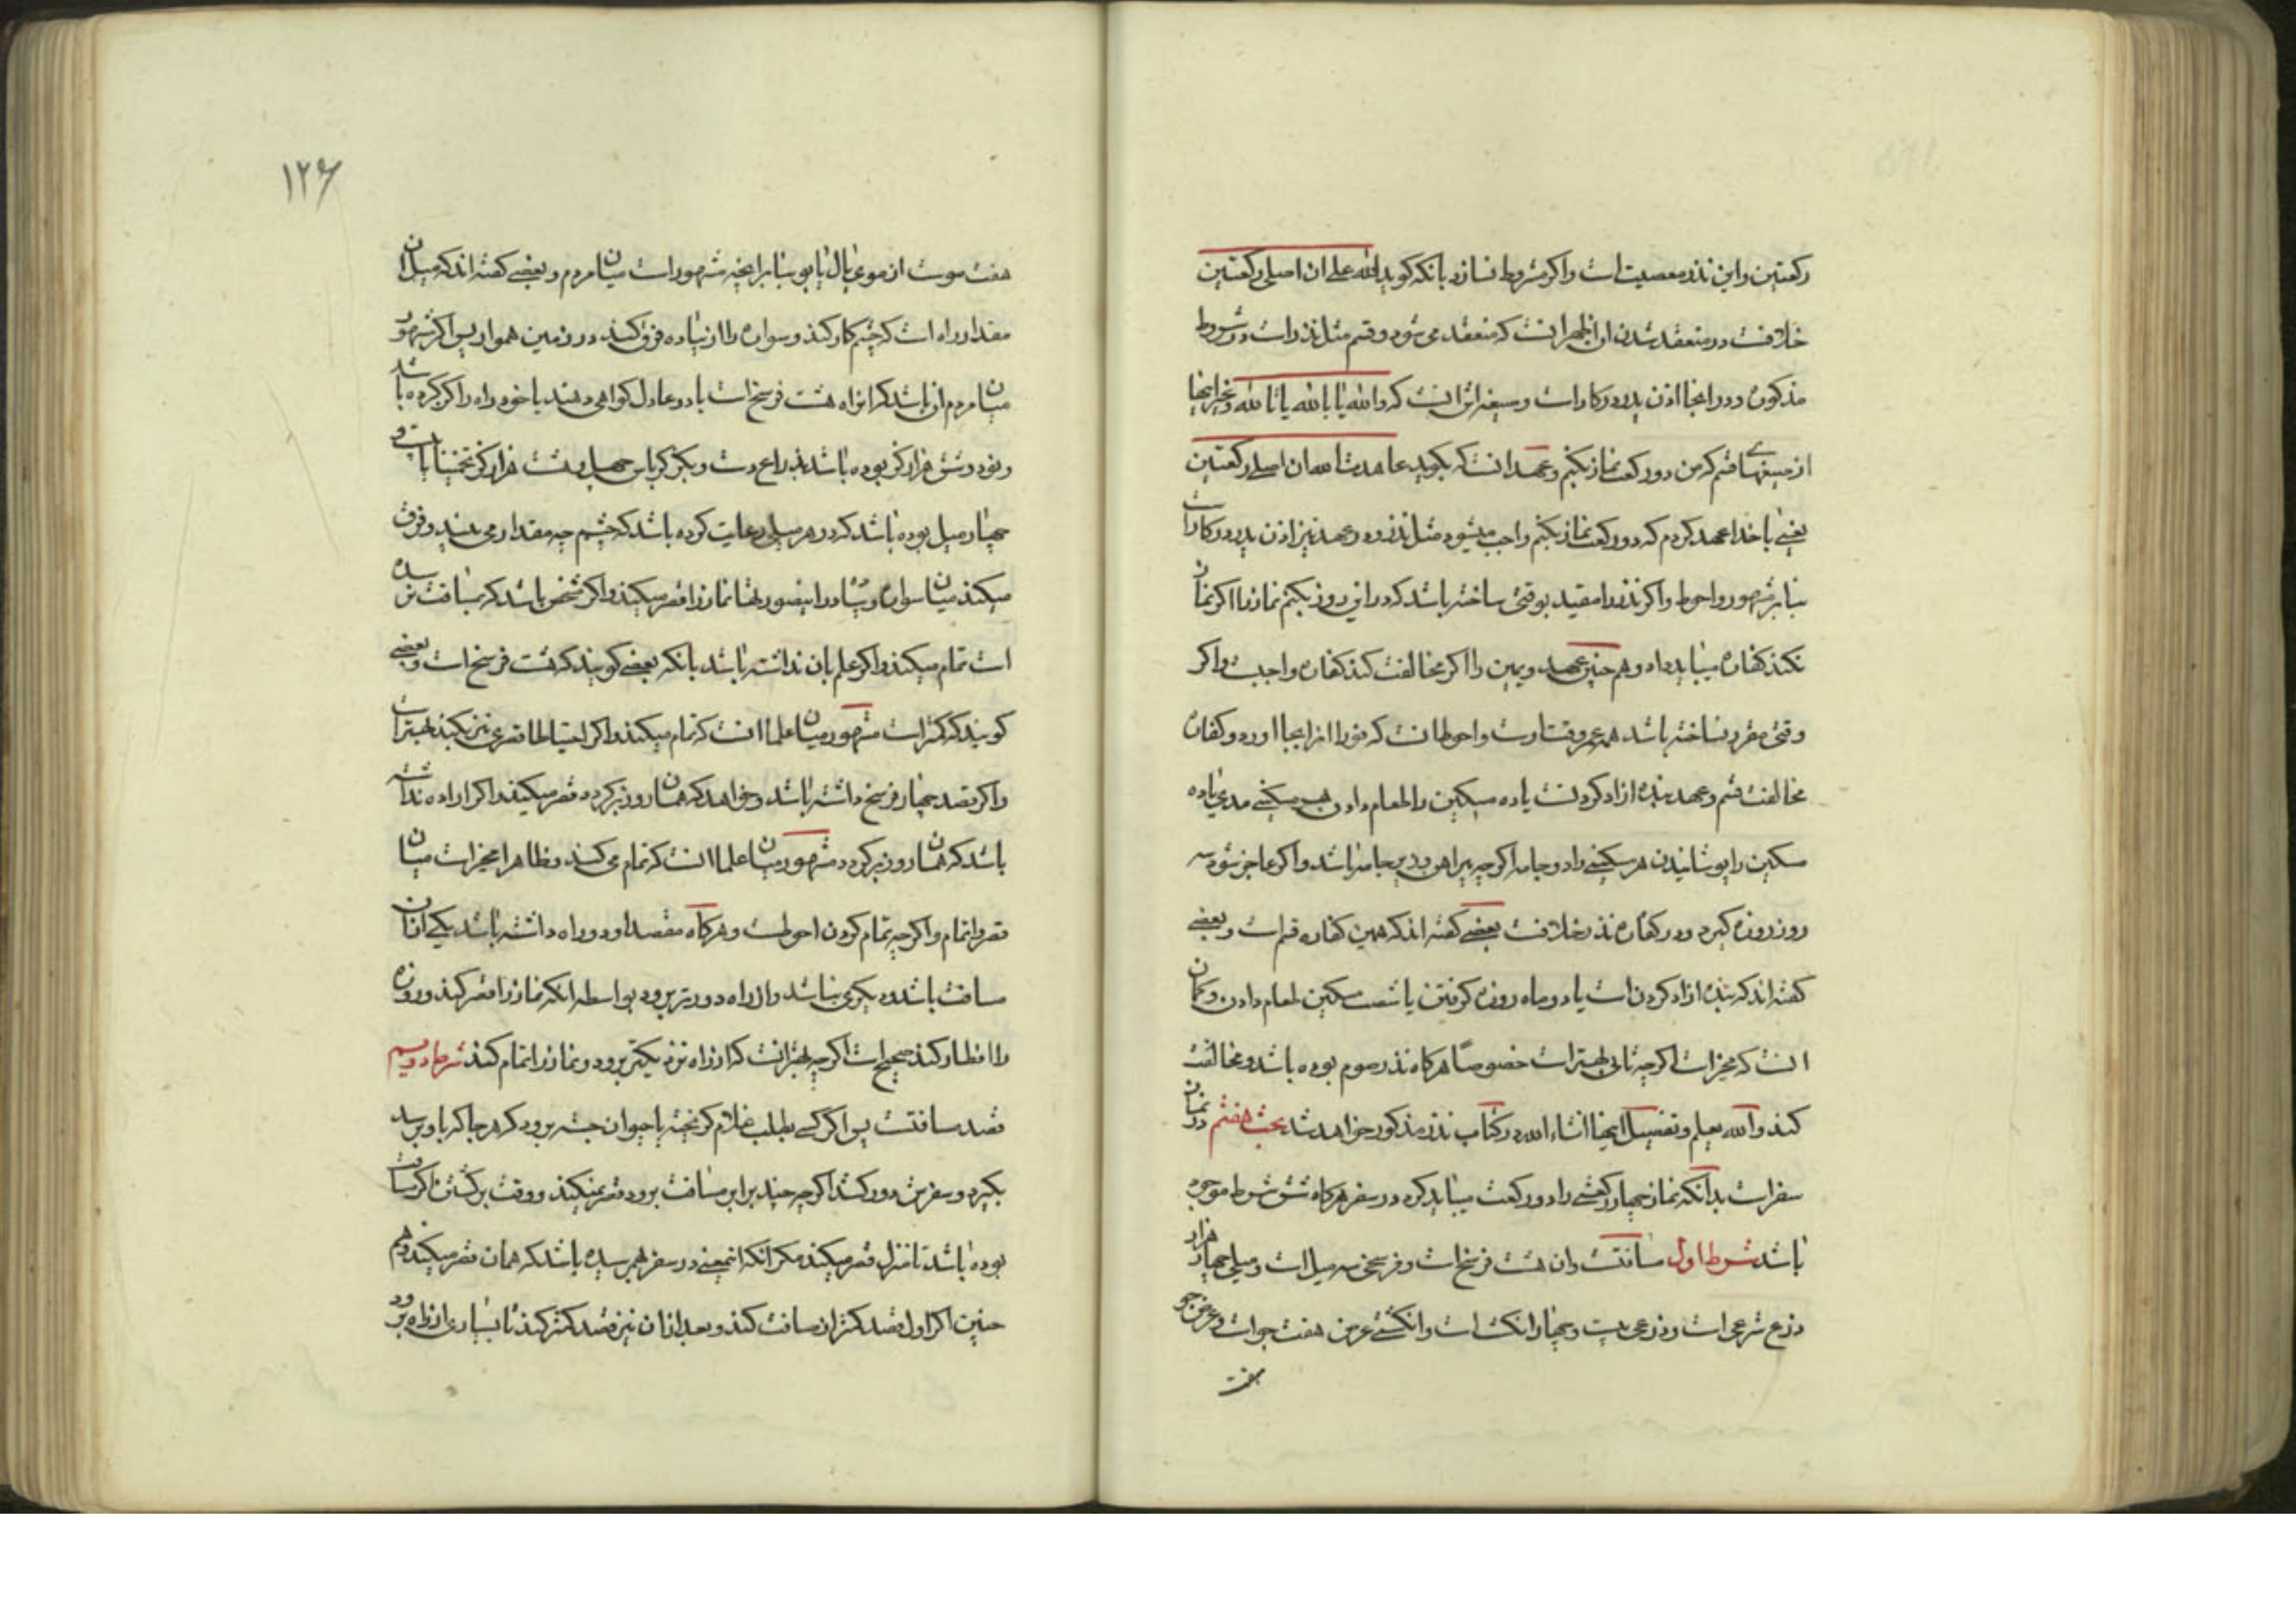 رکعتین و این نذر معصیت است و اگر مشروط نسازد بانکه کوید لله علی ان اصلی رکعتین
خلافست در منعقد شدن ان اظهر انست که منعقد می شود و قسم مثل نذر است در شروط
مذکوره و در اینجا اذن پدر در کار است و صیغه اش انست که والله یا بالله یا تالله و غیر اینها
از صیغهای قسم که من دو رکعت نماز بکنم و عهد انست که بکوید عاهدت الله ان اصلی رکعتین
یعنی با خدا عهد کردم که دو رکعت نماز بکنم واجب میشود مثل نذر و در عهد نیز اذن پدر در کار است
بنا بر مشهور و احوط و اکر نذر را مقید بوقتی ساخته باشد که در این روز بکنم نماز را اکر نماز
نکند کفاره میباید داد و هم چنین عهد و یمین را اکر مخالفت کند کفاره واجبست و اکر
وقتی مقرر نساخته باشد همه عمر وقتش است و احوط انست که فورا انرا بجا اورد و کفاره
مخالفت قسم و عهد بنده ازاد کردنست یا ده مسکین را طعام دادن هر مسکینی مدی یا ده
مسکین را پوشانیدن هر مسکینی را دو جامه اکرچه پیراهن و زیر جامه باشد و اکر عاجز شود سه
روز روزه کیرد و در کفاره نذر خلافست بعضی کفته اند که همین کفاره قسم است و بعضی
کفته اند که بنده ازاد کردن است یا دو ماه روزه کرفتن یا شصت مسکین طعام دادن و کمان
انست که مخیر است اکرچه ثانی بهتر است خصوصا هر کاه نذر صوم بوده باشد و مخالفت
کند والله یعلم و تفصیل اینها انشاء الله در کتاب نذر مذکور خواهد شد بحث هفتم در نماز
سفر است بدانکه نماز چهار رکعتی را دو رکعت میباید کرد در سفر هر کاه شش شرط موجود
باشد شرط اول مسافتست و ان هشت فرسخ است و فرسخی سه میل است و میلی چهار هزار
ذرع شرعی است و ذرعی بیست و چهار انکشت است و انکشتی عرض هفت جو است و عرض جو
هفت
۱۲۶
هفت موست از موی یال یابو بنا بر انچه مشهور است میان مردم و بعضی کفته اند که میل ان
مقدار راه است که چشم کار کند و سواره را از پیاده فرق کند در زمین هموار پس اکر مشهور
میان مردم ان باشد که این راه هشت فرسخ است یا دو عادل کواهی دهند یا خود راه را کز کرده باشد
چهار میل بوده باشد که در هر میلی رعایت کرده باشد که چشم چه مقدار می بیند و فرق
میکند میان سواره و پیاده در اینصورتها نماز را قصر میکند و اکر مشخص باشد که بمسافت نرسیده
است تمام میکند و اکر علم بان نداشته باشد بانکه بعضی کویند که هشت فرسخ است و بعضی
کویند که کمتر است مشهور میان علما انست که تمام میکند و اکر احتیاطا قصری نیز بکند بهتر است
و اکر قصد چهار فرسخ داشته باشد و خواهد که همان روز بر کردد قصر میکند و اکر اراده نداشته
باشد که همان روز بر کردد مشهور میان علما انست که تمام می کند و ظاهرا مخیر است میان
قصر و اتمام و اکرچه تمام کردن احوطست و هر کاه مقصد او دو راه داشته باشد یکی از انان
مسافت باشد و دیکری نباشد و از راه دورتر برود بواسطه انکه نماز را قصر کند و روزه
را افطار کند صحیح است اکرچه بهتر انست که از راه نزدیکتر برود و نماز را تمام کند شرط دویم
قصد مسافتست پس اکر کسی بطلب غلام کریخته یا حیوان جسته برود که هر جا که باو برسد
بکیرد و سفرش دور کشد اکرچه چند برابر مسافت برود قصر نمیکند و وقت برکشتن اکر مسافت
بوده باشد تا منزل قصر میکند مکر انکه انمعنی در سفر بهم رسیده باشد که همان قصر میکند و هم
چنین اکر اول قصد کمتر از مسافت کند و بعد از ان نیز قصد کمتر کند تا بسیاری از راه برود